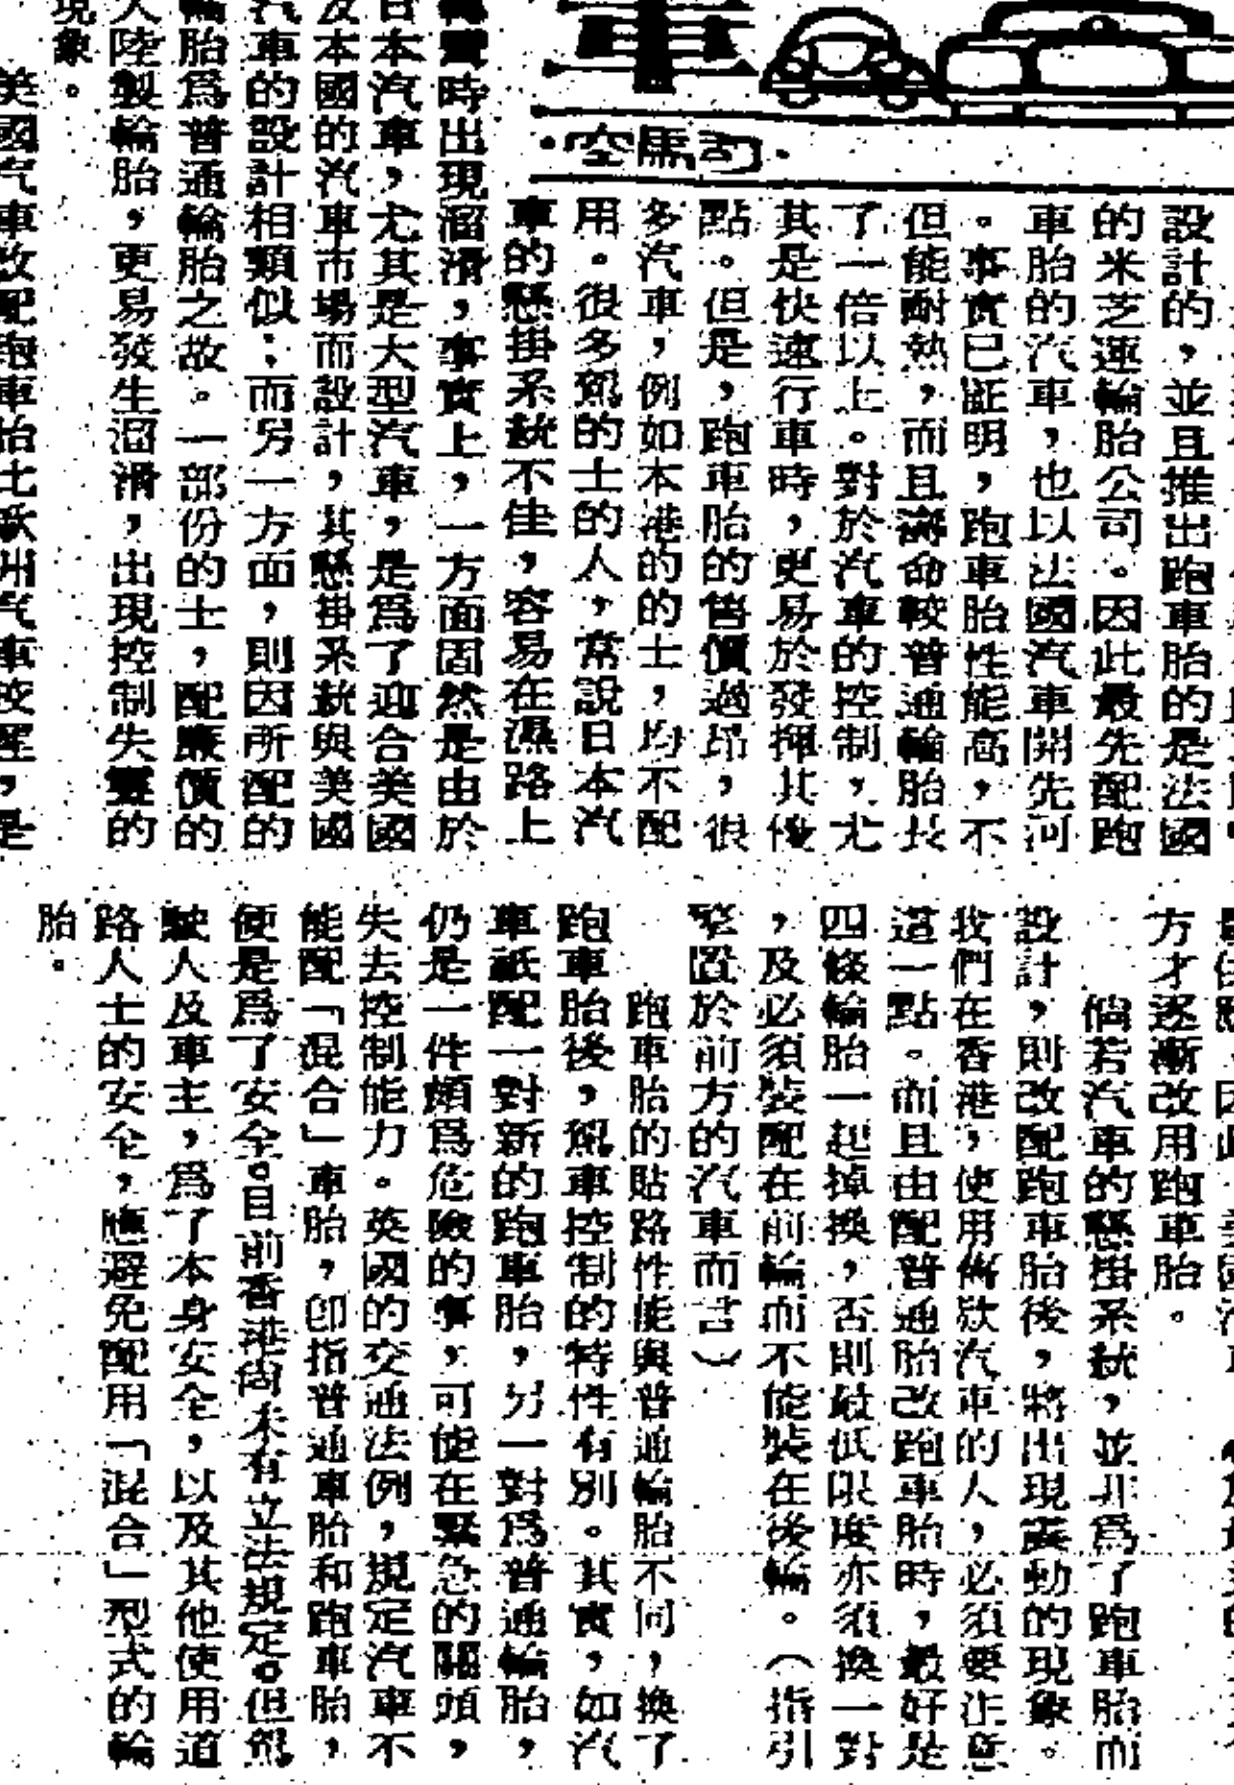 車
·空馬司·
設計的，並且推出跑車胎的是法國
的米芝運輪胎公司。因此最先配跑
車胎的汽車，也以法國汽車開先河
。事實已証明，跑車胎性能高，不
但能耐熱，而且壽命較普通輪胎長
了一倍以上。對於汽車的控制，尤
其是快速行車時，更易於發揮其優
點。但是，跑車胎的售價過昂，很
多汽車，例如本港的的士，均不配
用。很多駕的士的人，常說日本汽
車的懸掛系統不佳，容易在濕路上
時出現溜滑，事實上，一方面固然是由於
日本汽車，尤其是大型汽車，是爲了迎合美國
及本國的汽車市場而設計，其懸掛系統與美國
汽車的設計相類似；而另一方面，則因所配的
輪胎爲普通輪胎之故。一部份的士，配廉價的
大陸製輪胎，更易發生溜滑，出現控制失靈的
現象。
美國汽車改配跑車胎比歐洲汽車較遲，是
方才逐漸改用跑車胎。
倘若汽車的懸掛系統，並非爲了跑車胎而
設計，則改配跑車胎後，將出現震動的現象。
我們在香港，使用舊欵汽車的人，必須要注意
這一點。而且由配普通胎改跑車胎時，最好是
四條輪胎一起掉換，否則最低限度亦須換一對
，及必須裝配在前輪而不能裝在後輪。（指引
擎置於前方的汽車而言）
跑車胎的貼路性能與普通輪胎不同，換了
跑車胎後，駕車控制的特性有別。其實，如汽
車祇配一對新的跑車胎，另一對爲普通輪胎，
仍是一件頗爲危險的事，可能在緊急的關頭，
失去控制能力。英國的交通法例，規定汽車不
能配「混合」車胎，卽指普通車胎和跑車胎，
便是爲了安全。目前香港尚未有立法規定。但駕
駛人及車主，爲了本身安全，以及其他使用道
路人士的安全，應避免配用「混合」型式的輪
胎。